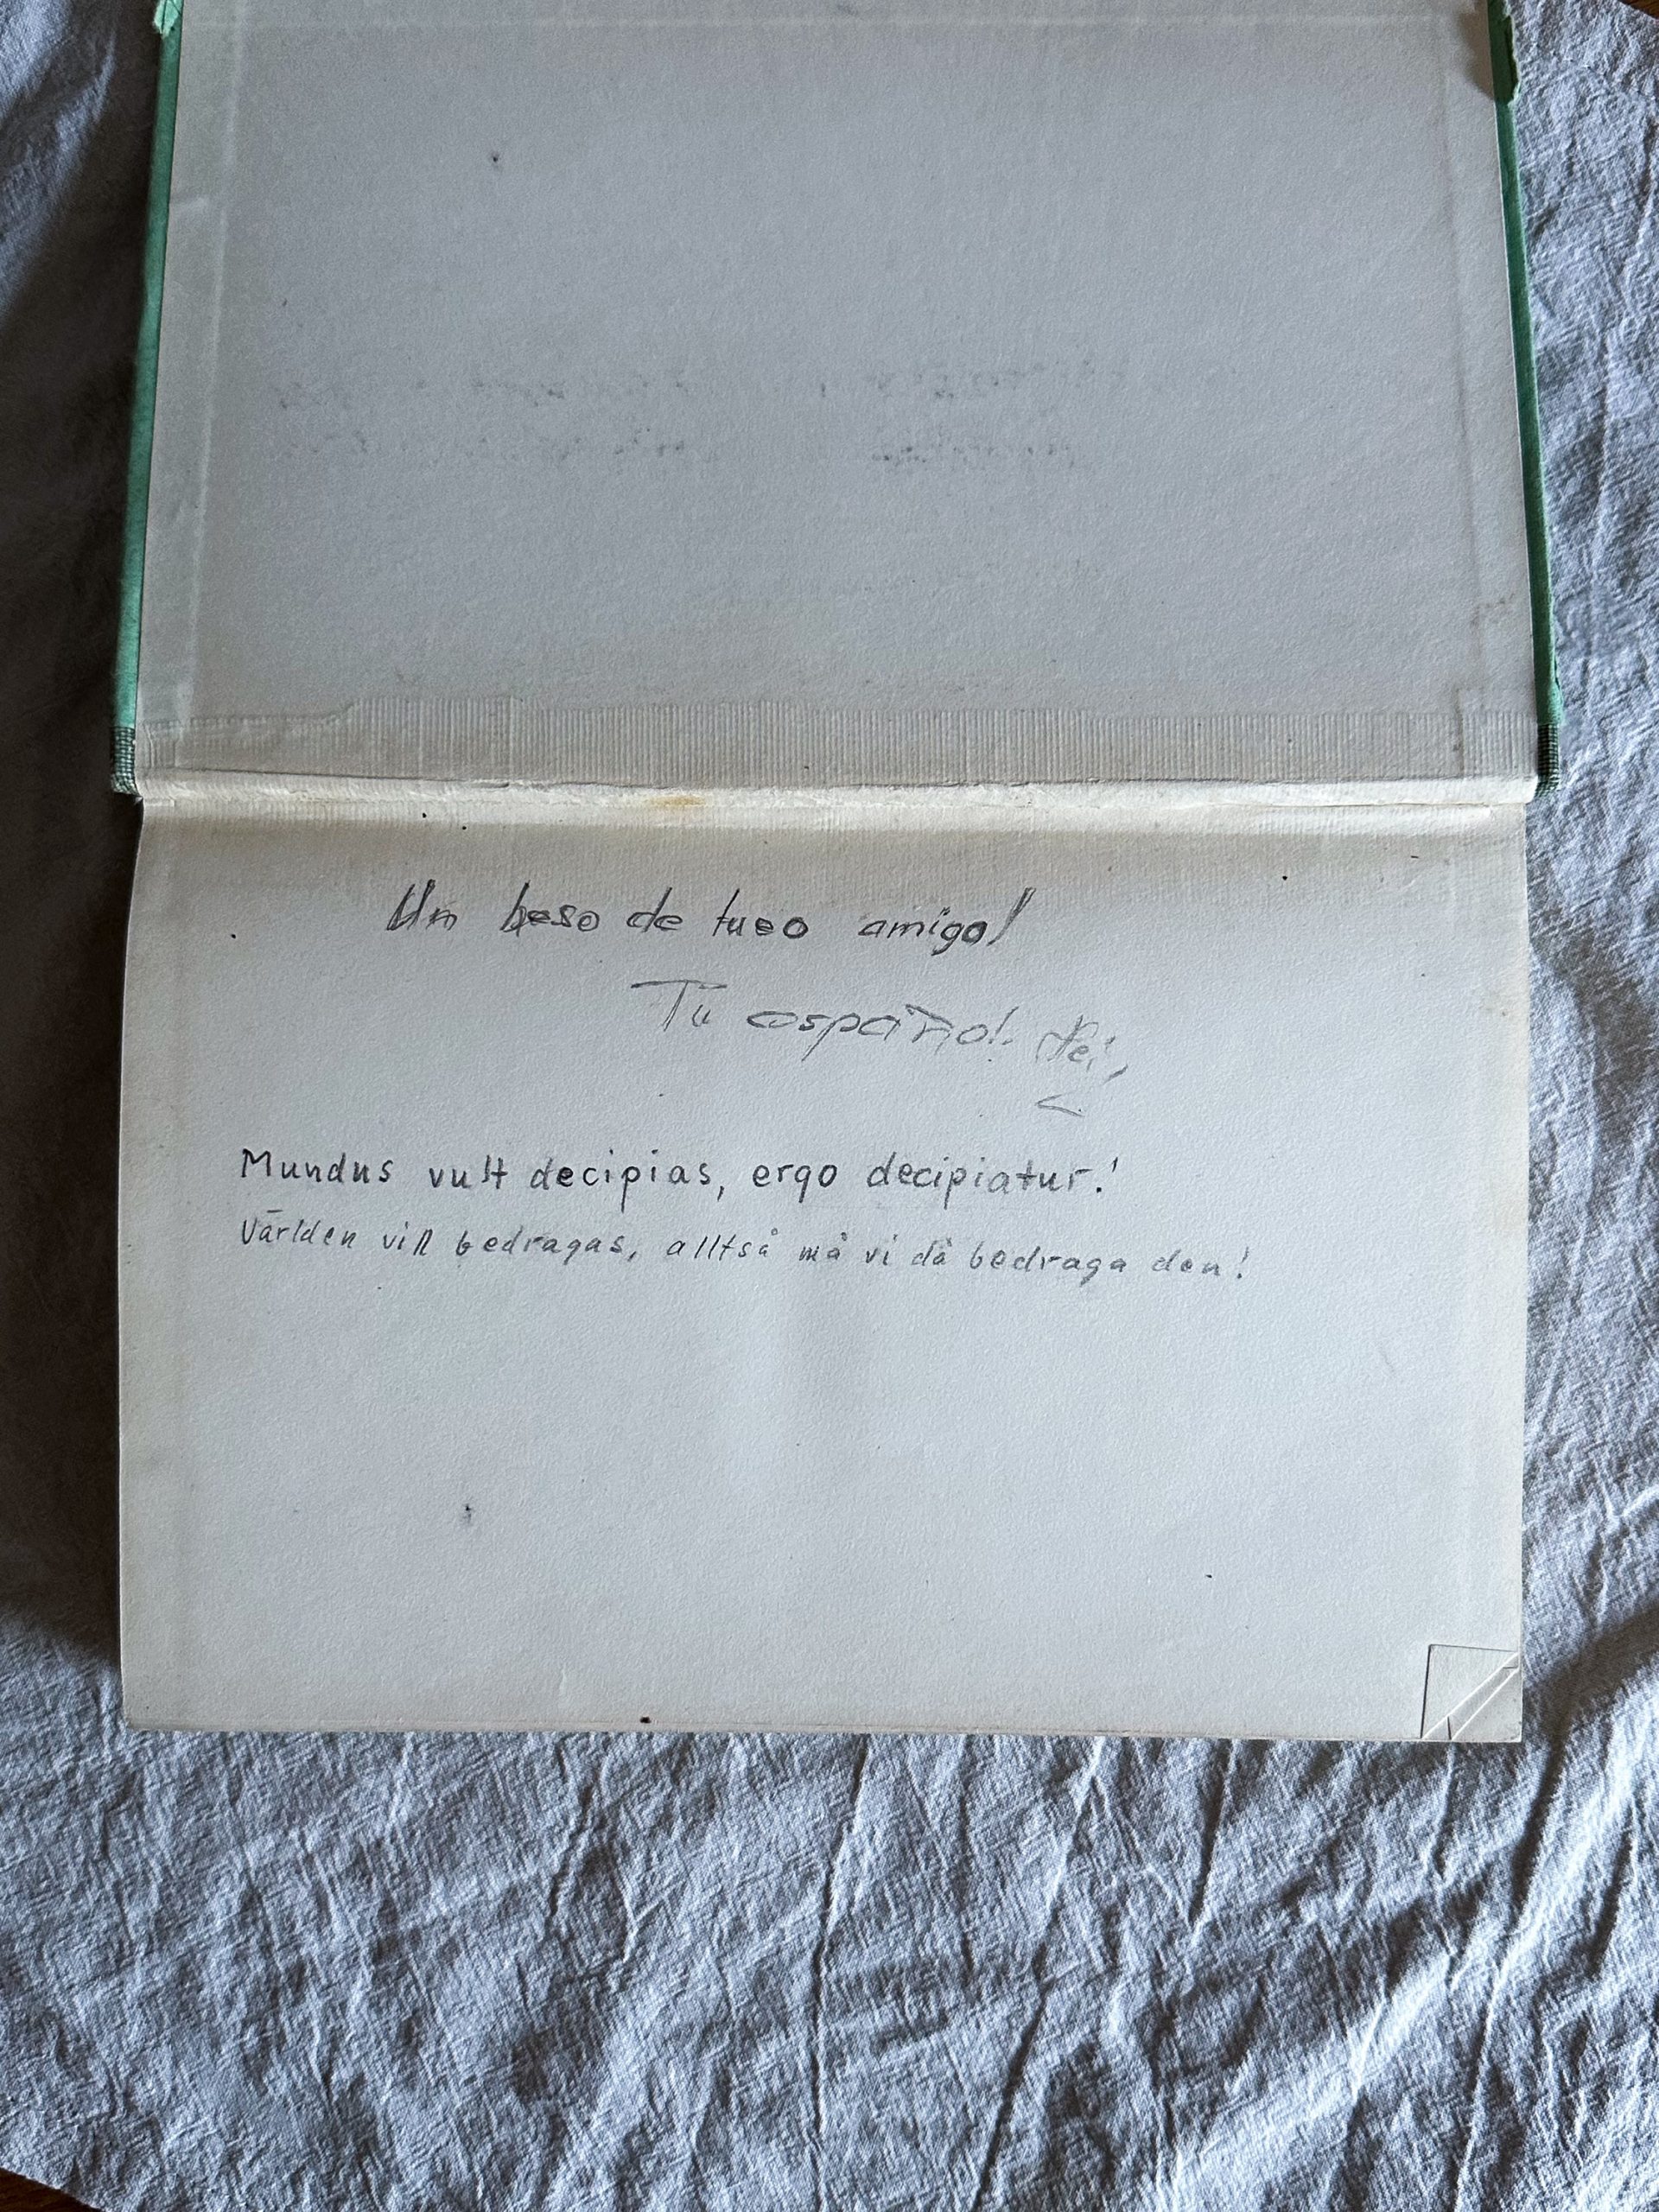 Un beso de tueo amigo!
Tu
Mundus vult decipias, ergo decipiatur!
Världen vill bedragas, alltså må vi då bedraga den!